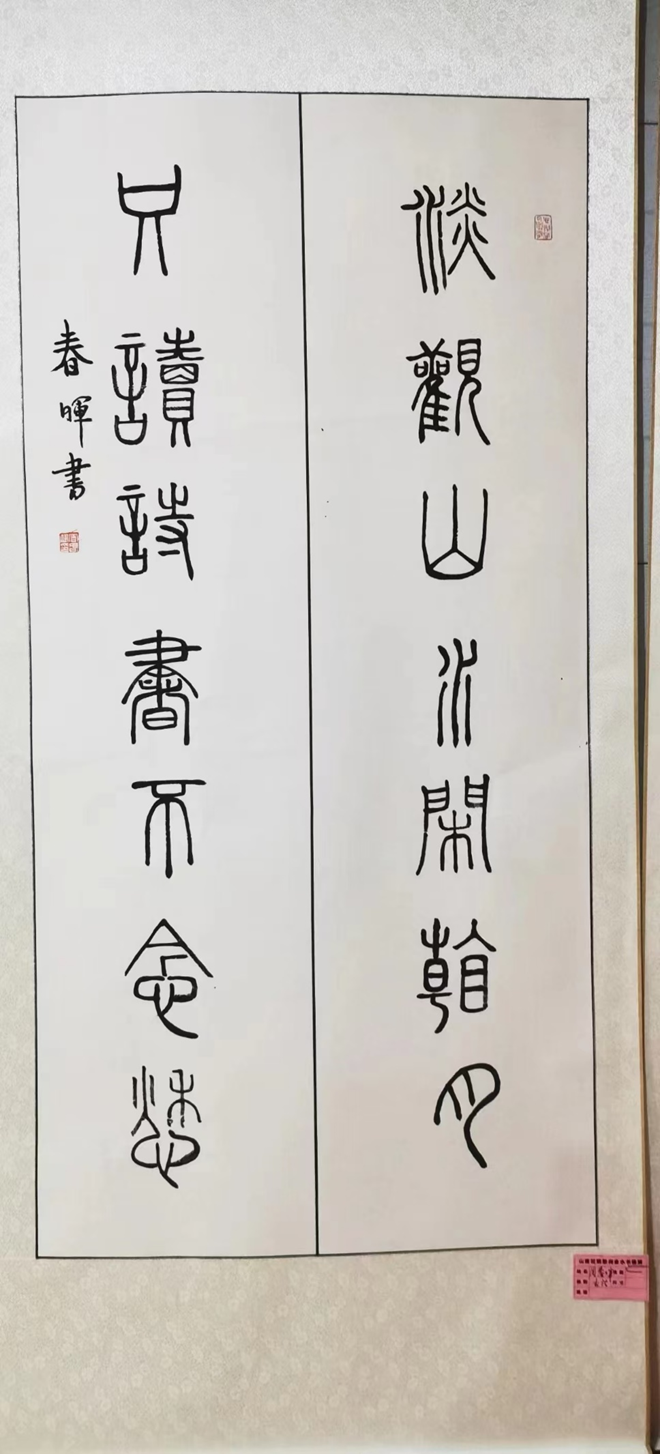 淡觀山水閑看月
只讀詩書不念愁
春暉書